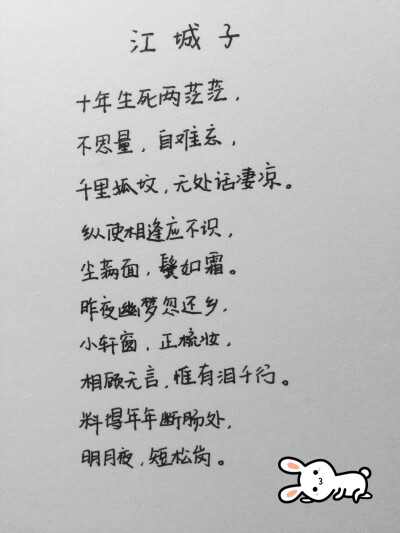 江城子
十年生死两茫茫，
不思量，自难忘，
千里孤坟，无处话凄凉。
纵使相逢应不识，
尘满面，鬓如霜。
昨夜幽梦忽还乡，
小轩窗，正梳妆，
相顾无言，惟有泪千行。
料得年年断肠处，
明月夜，短松岗。